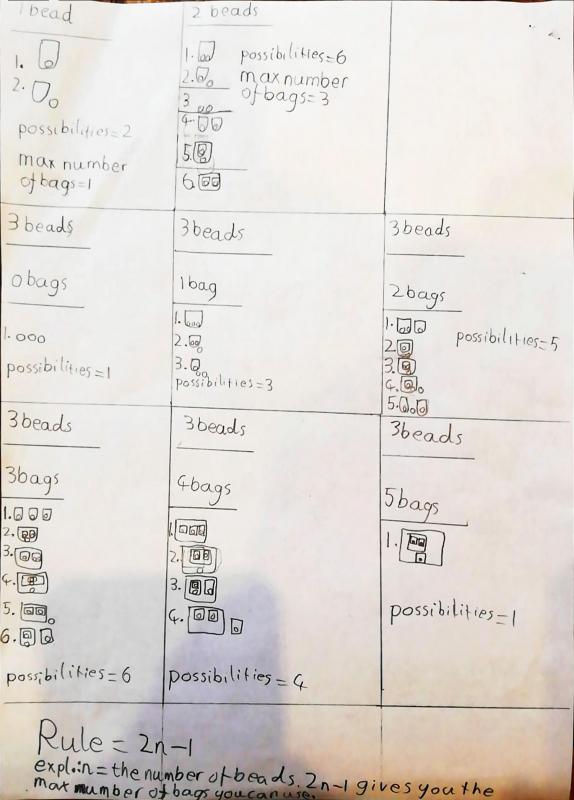 1 bead
1.
2.
possibilities=2
max number
of bags=1
2 beads
1.
2.
3
4.
5.
6.
possibilities=6
max number
of bags=3
3 beads
0 bags
1.
possibilities=1
3 beads
1 bag
1.
2.
3.
possibilities=3
3 beads
2 bags
1.
2.
3.
4.
5.
possibilities=5
3 beads
3 bags
1.
2.
3.
4.
5.
6.
possibilities=6
3 beads
4 bags
1.
2.
3.
4.
possibilities=4
3 beads
5 bags
1.
possibilities=1
Rule = 2n-1
=the number of beads. 2n-1 gives you the
max number of bags you can use.